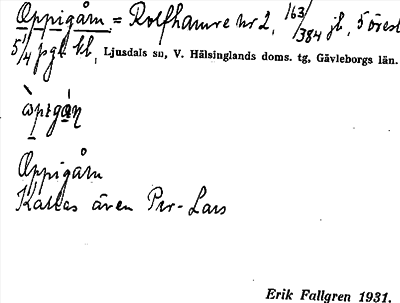 Oppigårn = Rolfhamre nr 2, 163/384 jb, 5 öresl
5 1/4 pgl kl, Ljusdals sn, V. Hälsinglands doms. tg, Gävleborgs län.
Oppigårn
Kallas även Per-Lars
Erik Fallgren 1931.